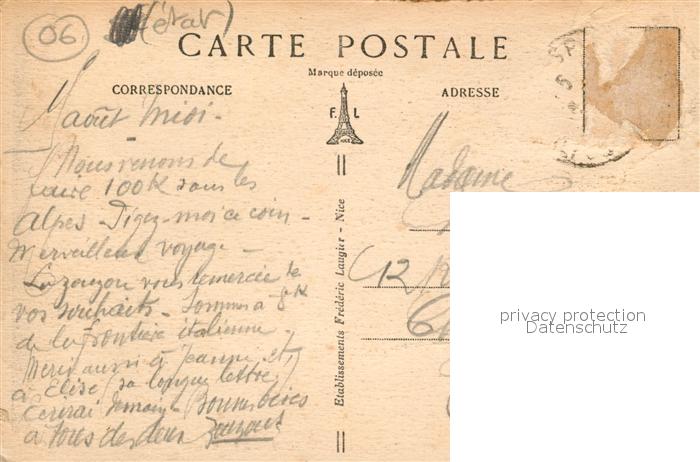 06 (état)
CARTE POSTALE
Marque déposée
CORRESPONDANCE
ADRESSE
F. L
NICE
août midi -
Nous venons de
faire 100K dans les
Alpes - Pigez-moi ce coin -
Merveilleux voyage -
vous remercie de
vos souhaits - Sommes à 8K
de la frontière italienne -
Merci aussi à Jeanne, et
à Elise, sa longue lettre,
Ecrirai demain - Bonnes bises
à tous les deux
Madame
12
Etablissements Frédéric Laugier - Nice
privacy protection
Datenschutz